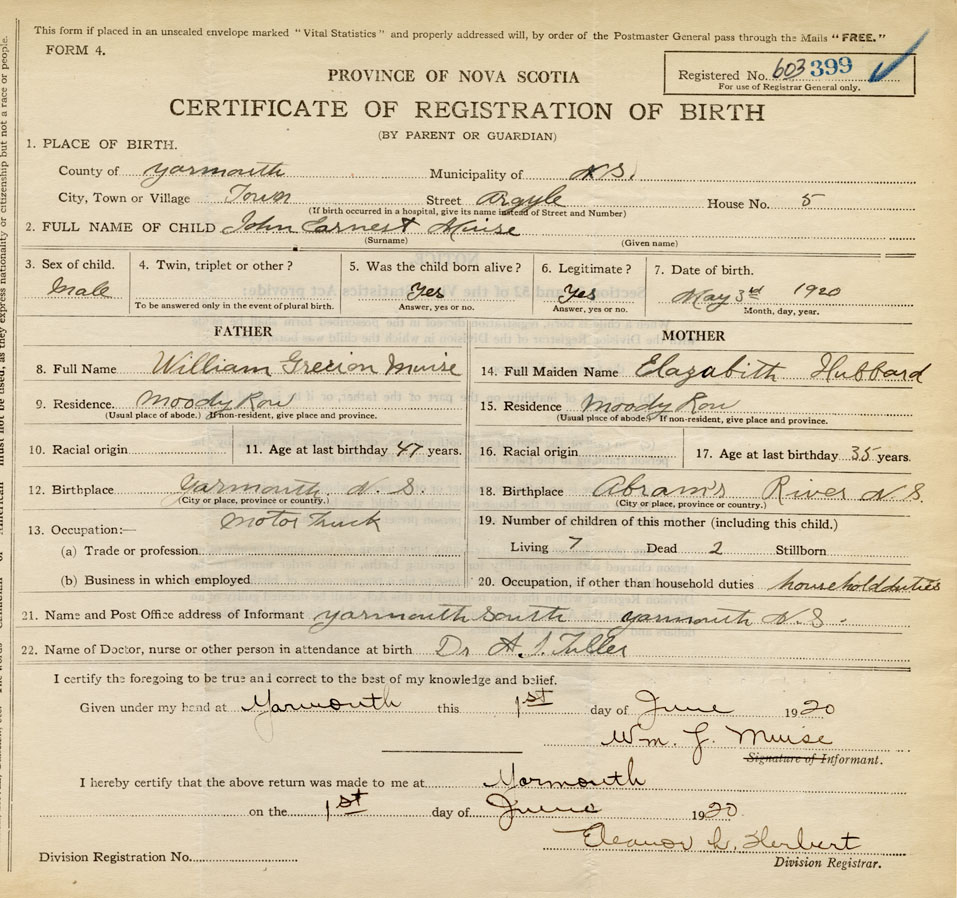 This form if placed in an unsealed envelope marked "Vital Statistics" and properly addressed will, by order of the Postmaster General pass through the Mails "FREE."
FORM 4.
Registered No. 603 399
For use of Registrar General only.
PROVINCE OF NOVA SCOTIA
CERTIFICATE OF REGISTRATION OF BIRTH
(BY PARENT OR GUARDIAN)
1. PLACE OF BIRTH.
County of Yarmouth Municipality of N.S.
City, Town or Village Town Street Argyle House No. 5
(If birth occurred in a hospital, give its name instead of Street and Number)
2. FULL NAME OF CHILD John Earnest Muise
(Surname) (Given name)
3. Sex of child. 4. Twin, triplet or other? 5. Was the child born alive? 6. Legitimate? 7. Date of birth.
Male Yes Yes May 3rd 1920
To be answered only in the event of plural birth. Answer, yes or no. Answer, yes or no. Month, day, year.
FATHER MOTHER
8. Full Name William Grecion Muise
14. Full Maiden Name Elazabith Hubbard
9. Residence. Moody Row
(Usual place of abode.) If non-resident, give place and province.
15. Residence Moody Row
(Usual place of abode.) If non-resident, give place and province.
10. Racial origin 11. Age at last birthday 47 years.
16. Racial origin 17. Age at last birthday 35 years.
12. Birthplace Yarmouth. N. S.
(City or place, province or country.)
18. Birthplace Abram's River N S.
(City or place, province or country.)
13. Occupation:— Motor Truck
(a) Trade or profession
(b) Business in which employed
19. Number of children of this mother (including this child.)
Living 7 Dead 2 Stillborn
20. Occupation, if other than household duties household duties
21. Name and Post Office address of Informant Yarmouth South Yarmouth N. S.
22. Name of Doctor, nurse or other person in attendance at birth Dr
I certify the foregoing to be true and correct to the best of my knowledge and belief.
Given under my hand at Yarmouth this 1st day of June 1920
Wm. G. Muise
Signature of Informant.
I hereby certify that the above return was made to me at Yarmouth
on the 1st day of June 1920.
Eleanor L. Herbert
Division Registration No.
Division Registrar.